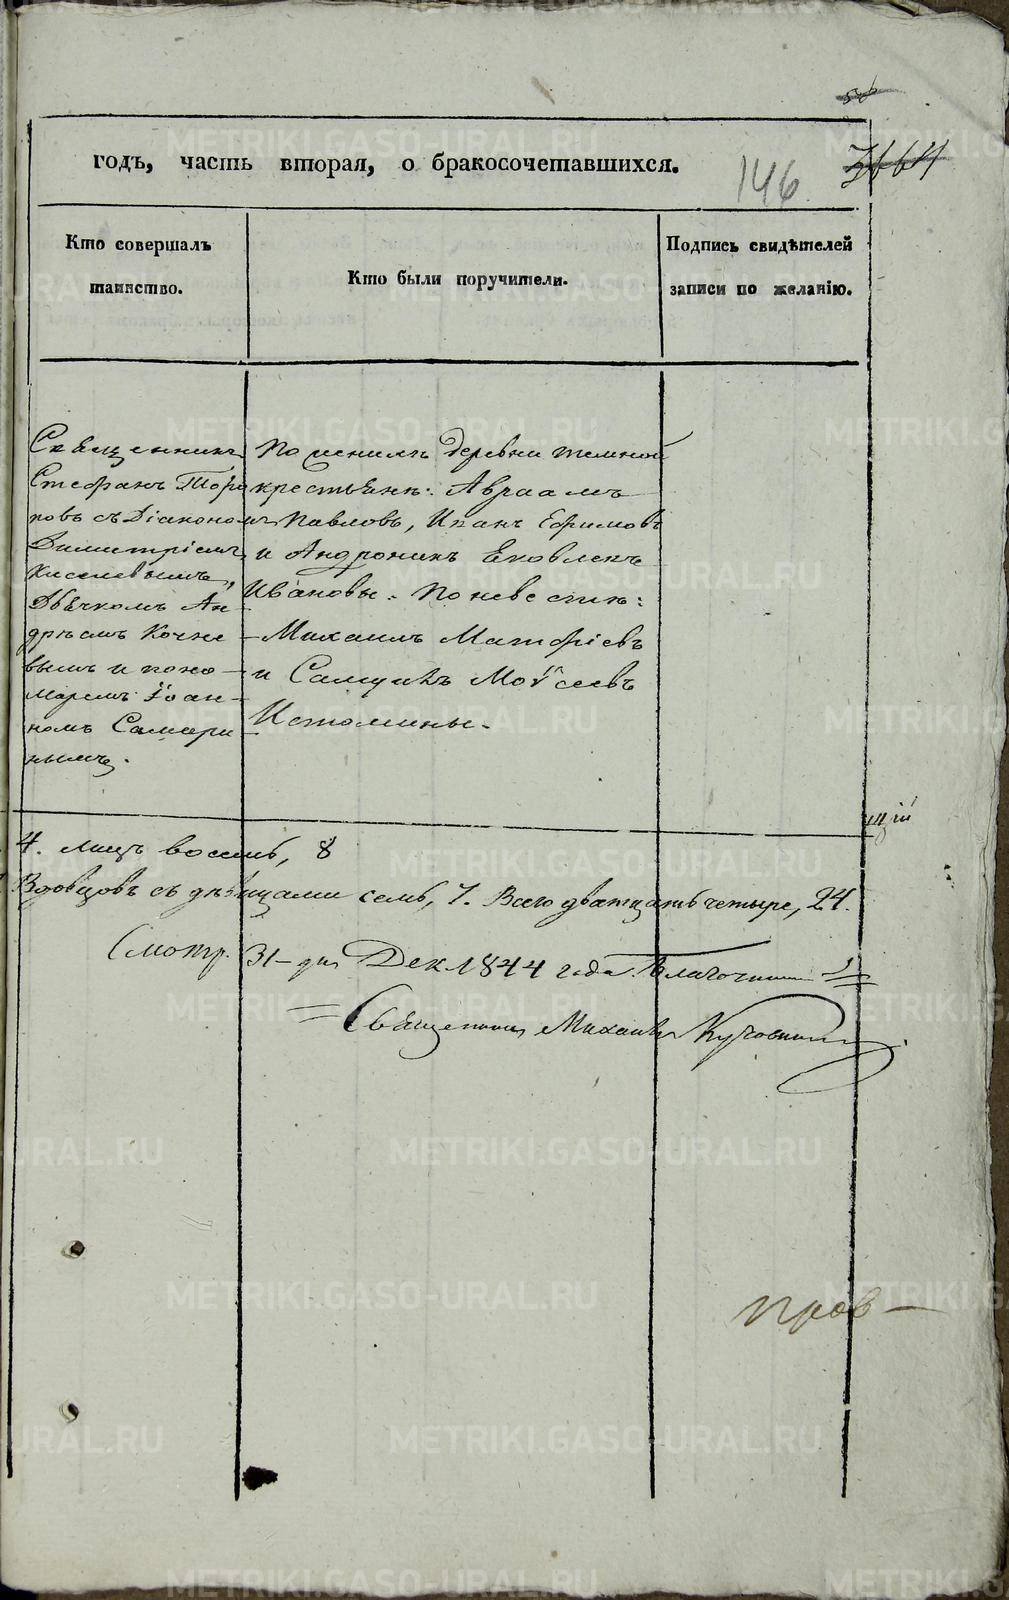 146
годъ, часть вторая, о бракосочетавшихся.
Кто совершалъ
таинство.
Кто были поручители.
Подпись свидѣтелей
записи по желанію.
Священникъ
Стефанъ Топо
ковъ съ Діакономъ
Димитріемъ
Киселевымъ,
Дьячкомъ Ан
дреемъ Кочне
вымъ и поно-
маремъ Іоан-
номъ Самари
нымъ.
По женихѣ деревни темной
крестьяне: Авраамъ
Павловъ, Иванъ Ефимовъ
и Андроникъ Яковлевъ
Ивановы. По невестѣ:
Михаилъ Матфіевъ
и Самуилъ Моѵсеевъ
Истомины.
4. лицъ восемь, 8
Вдовцовъ съ дѣвицами семь, 7. Всего дватцать четыре, 24.
Смотр. 31 дня Дек. 1844 года. Благочинный
Священникъ Михаилъ
пров
METRIKI.GASO-URAL.RU